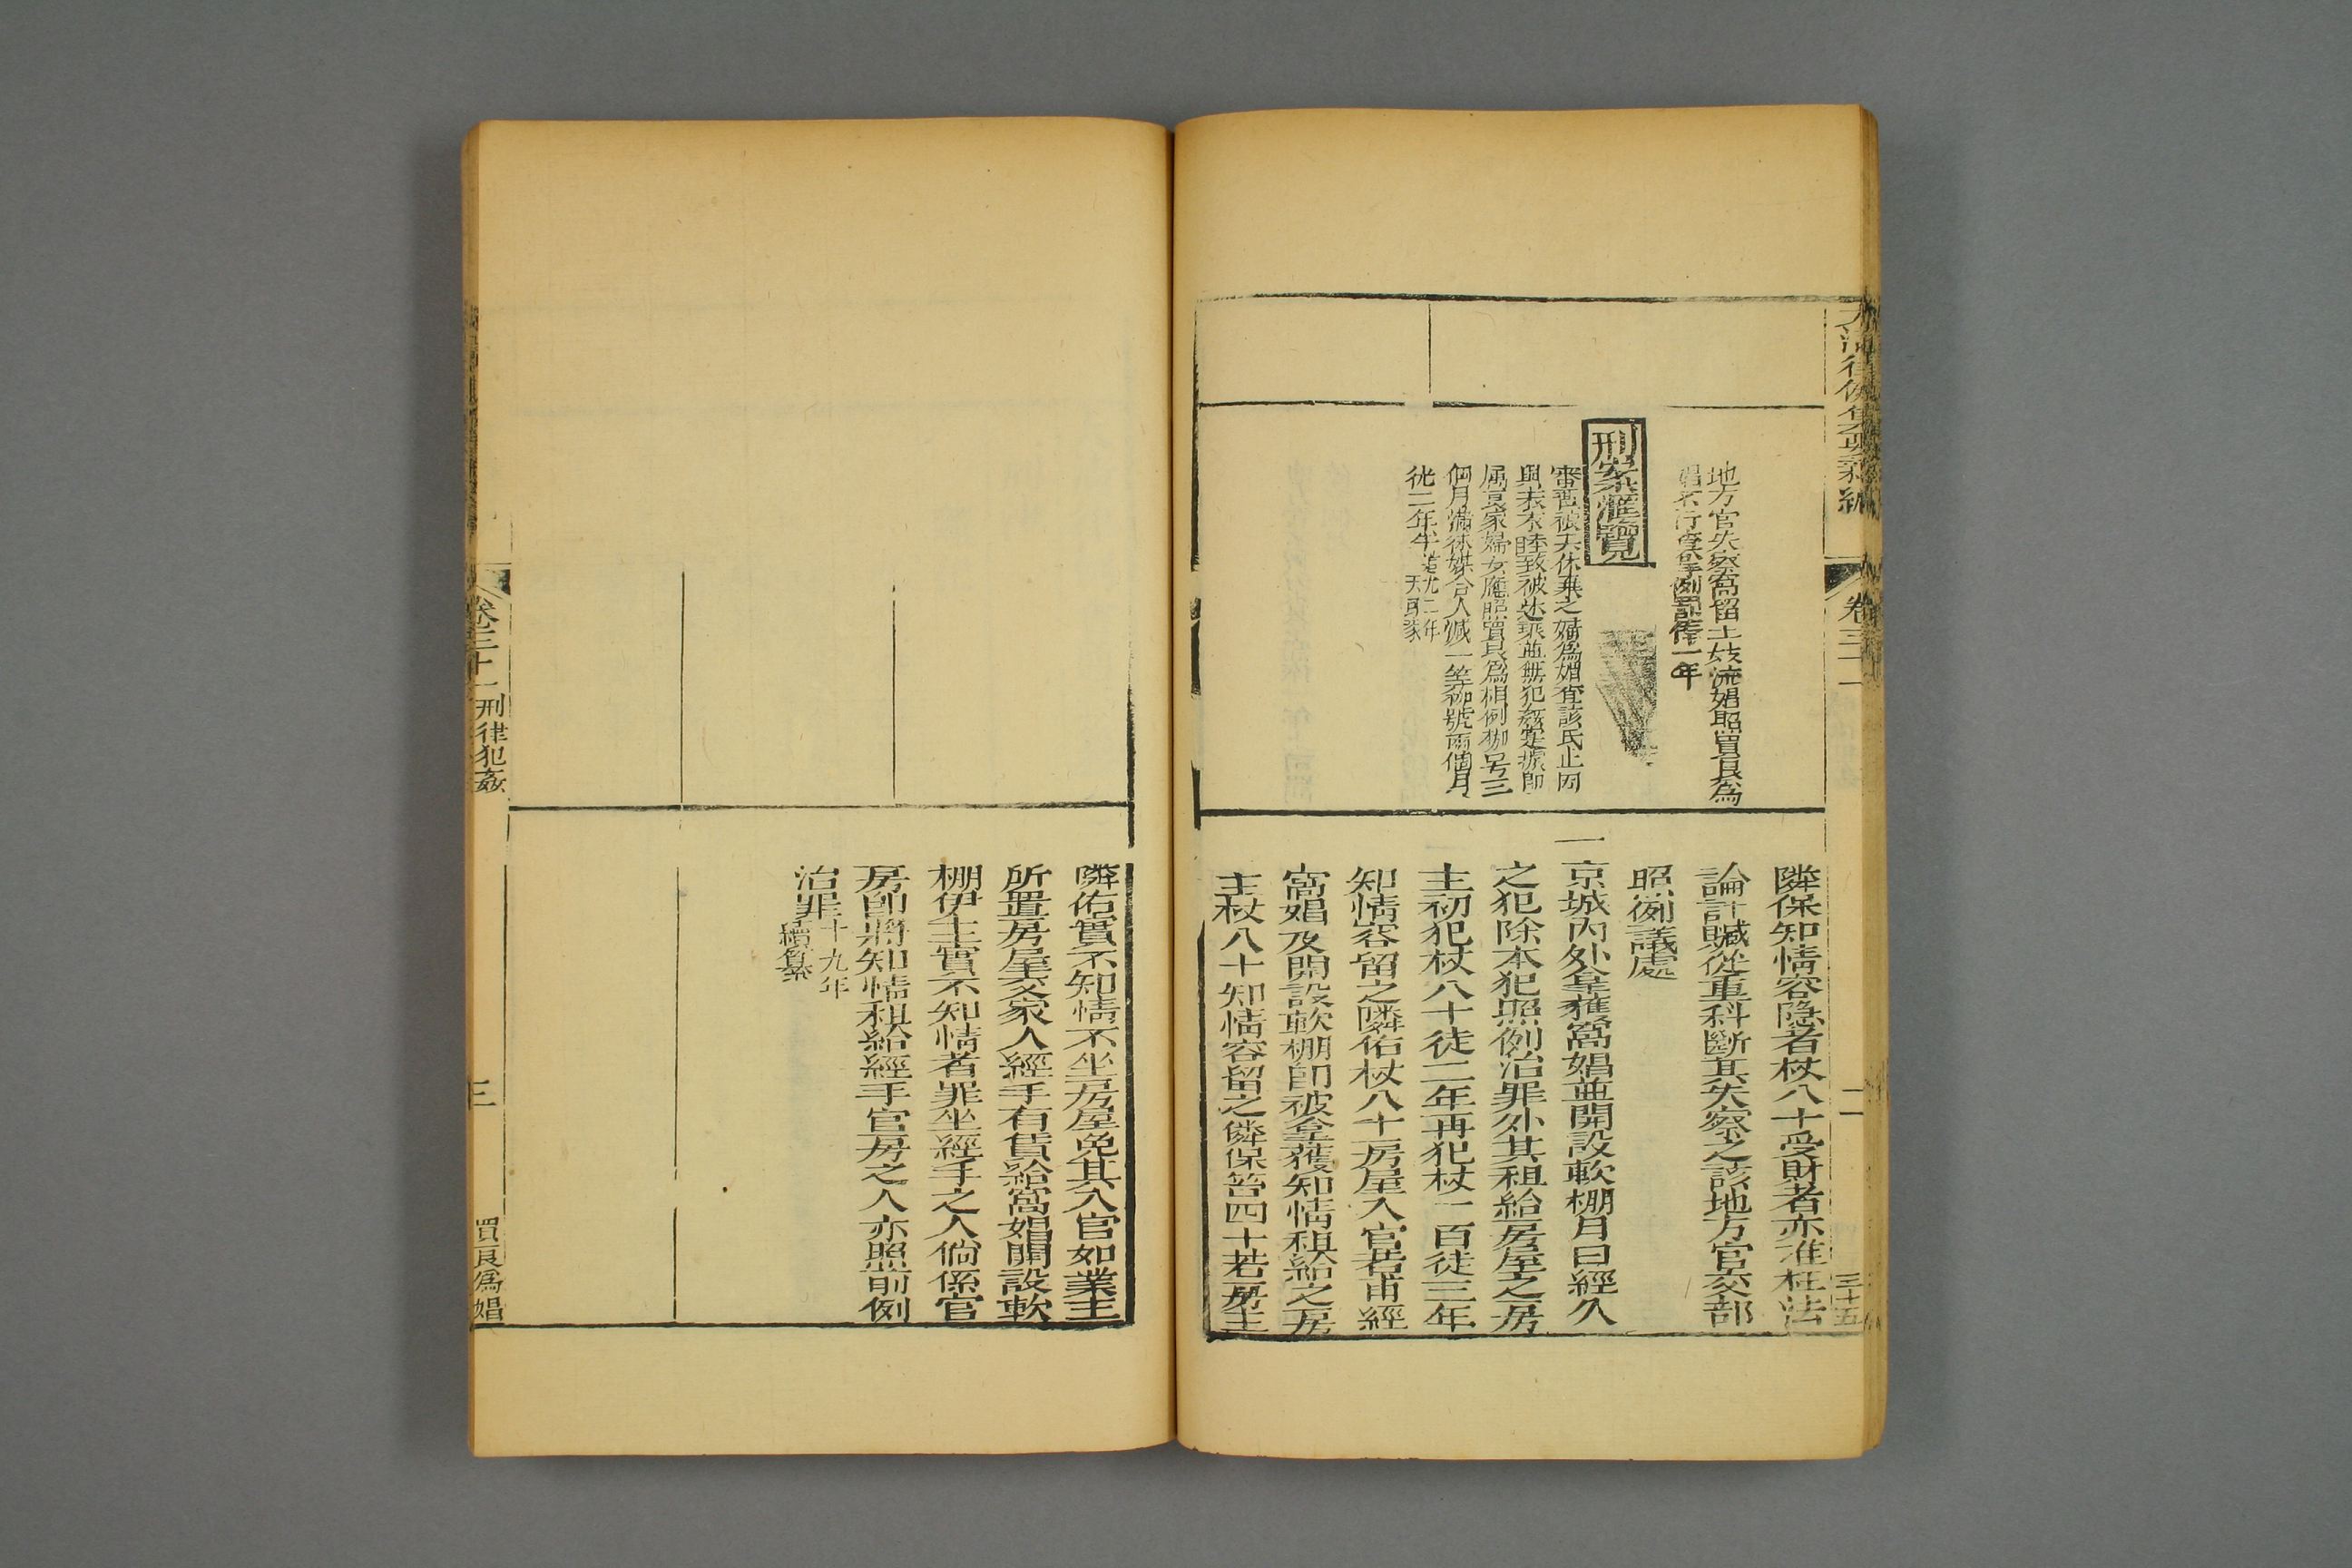 大清律例集要新編
卷三十一
三十五
地方官失察窩留土妓流娼照買良為
娼不行查拿例罰俸一年
刑案滙覽
審舊被夫休棄之婦為娼查該氏止因
與夫不睦致被休棄並無犯姦實據即
屬良家婦女應照買良為娼例枷号三
個月滿徒媒合人減一等枷號兩個月
徒二年半
鄰保知情容隱者杖八十受財者亦准枉法
論計贓從重科斷其失察之該地方官交部
照例議處
一京城內外拿獲窩娼並開設軟棚月日經久
之犯除本犯照例治罪外其租給房屋之房
主初犯杖八十徒二年再犯杖一百徒三年
知情容留之隣佑杖八十房屋入官若甫經
窩娼及開設軟棚即被拿獲知情租給之房
主杖八十知情容留之隣保笞四十若房主
隣佑實不知情不坐房屋免其入官如業主
所置房屋交家人經手有賃給窩娼開設軟
棚伊主實不知情者罪坐經手之人倘係官
房即將知情租給經手官房之人亦照前例
治罪
十九年
續纂
卷三十一
刑律犯姦
三
買良為娼